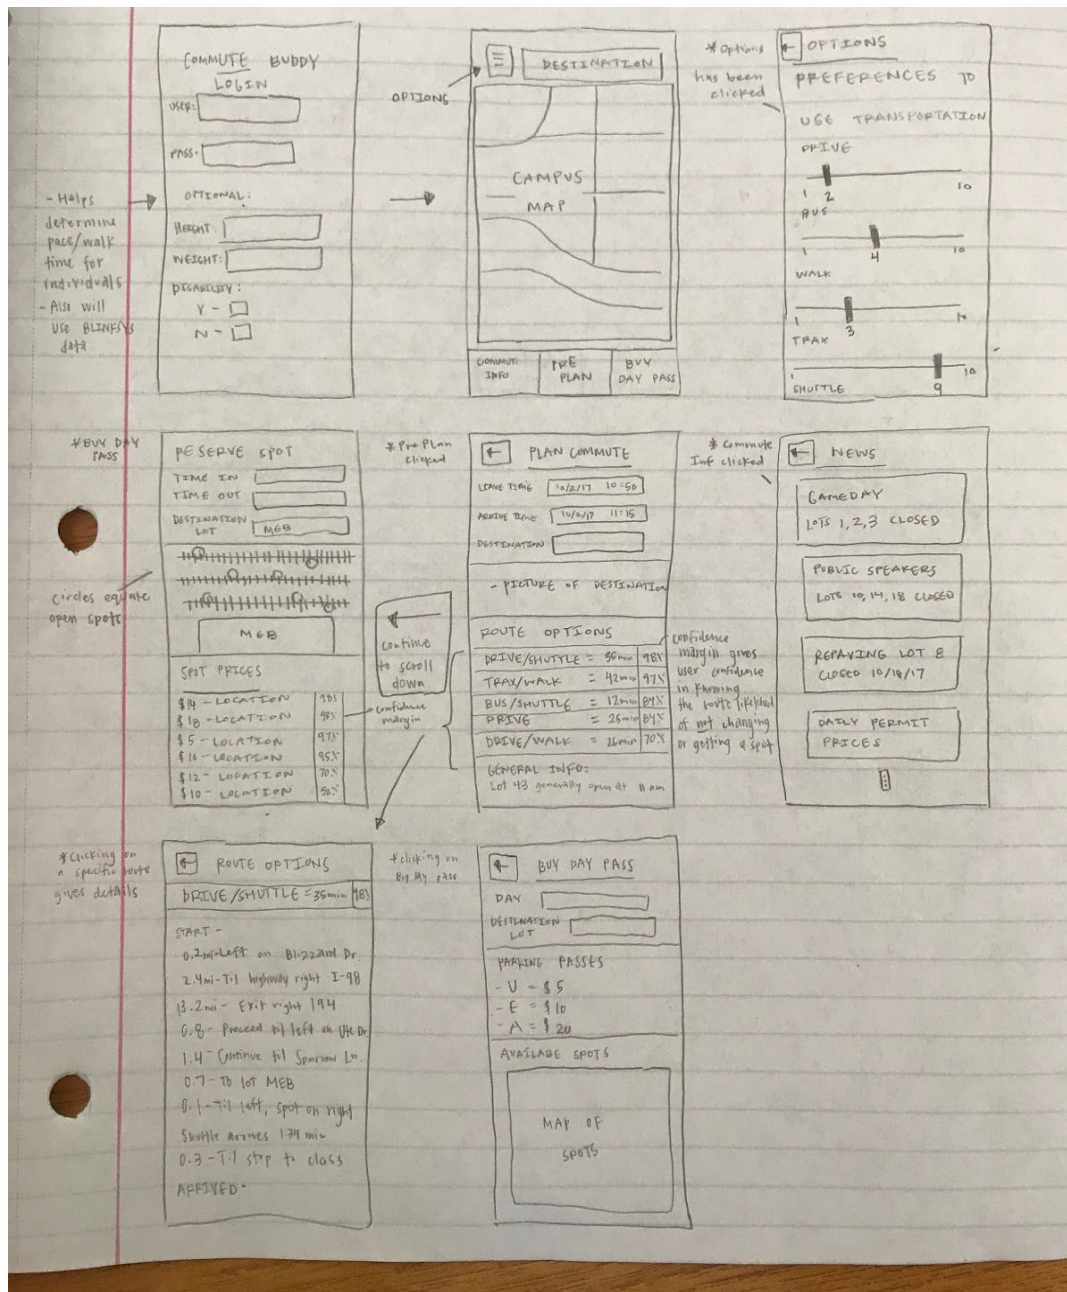 COMMUTE BUDDY
LOGIN
USER:
PASS:
OPTIONAL:
HEIGHT:
WEIGHT:
DISABILITY:
Y -
N -
- Helps
determine
pace/walk
time for
individuals
- Also will
use BLINKSYS
data
OPTIONS
DESTINATION
CAMPUS
MAP
COMMUTE
INFO
PRE
PLAN
BUY
DAY PASS
* Options
has been
clicked
OPTIONS
PREFERENCES TO
USE TRANSPORTATION
DRIVE
1 2 10
BUS
1 4 10
WALK
1 3
TRAX
1 9 10
SHUTTLE
* BUY DAY
PASS
RESERVE SPOT
TIME IN
TIME OUT
DESTINATION
LOT MEB
Circles equate
open spots
MEB
SPOT PRICES
$14 - LOCATION 98%
$18 - LOCATION 98%
$5 - LOCATION 97%
$16 - LOCATION 95%
$12 - LOCATION 70%
$10 - LOCATION 50%
confidence
margin
* Pre Plan
clicked
continue
to scroll
down
PLAN COMMUTE
LEAVE TIME 10/2/17 10:50
ARRIVE TIME 10/2/17 11:15
DESTINATION
- PICTURE OF DESTINATION
ROUTE OPTIONS
DRIVE/SHUTTLE = 35min 98%
TRAX/WALK = 42min 97%
BUS/SHUTTLE = 12min 84%
DRIVE = 25min 84%
DRIVE/WALK = 26min 70%
GENERAL INFO:
Lot 43 generally open at 11 am
confidence
margin gives
user confidence
in knowing
the route likelihood
of not changing
or getting a spot
* Commute
Inf clicked
NEWS
GAMEDAY
LOTS 1, 2, 3 CLOSED
PUBLIC SPEAKERS
LOTS 10, 14, 18 CLOSED
REPAVING LOT 8
CLOSED 10/18/17
DAILY PERMIT
PRICES
* Clicking on
a specific route
gives details
ROUTE OPTIONS
DRIVE/SHUTTLE = 35min 98%
START -
0.2mi - Left on Blizzard Dr.
2.4mi - Til highway right I-98
13.2mi - Exit right 194
0.8 - Proceed til left on Ute Dr
1.4 - Continue til Sparrow Ln.
0.7 - To lot MEB
0.1 - Til left, spot on right
Shuttle arrives 1:34 min
0.3 - Til stop to class
ARRIVED -
* clicking on
BUY DAY PASS
DAY
DESTINATION
LOT
PARKING PASSES
- U = $5
- E = $10
- A = $20
AVAILABE SPOTS
MAP OF
SPOTS